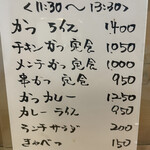 <11:30〜13:30>
かつ ライス 1400
チキンかつ 定食 1050
メンチかつ 定食 1000
串かつ 定食 950
かつ カレー 1250
カレー ライス 950
ランチサラダ 200
きゃべつ 150